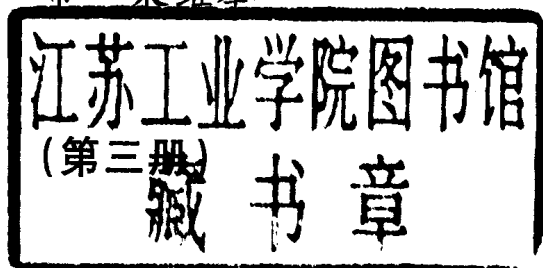 江苏工业学院图书馆
(第三册)
藏书章